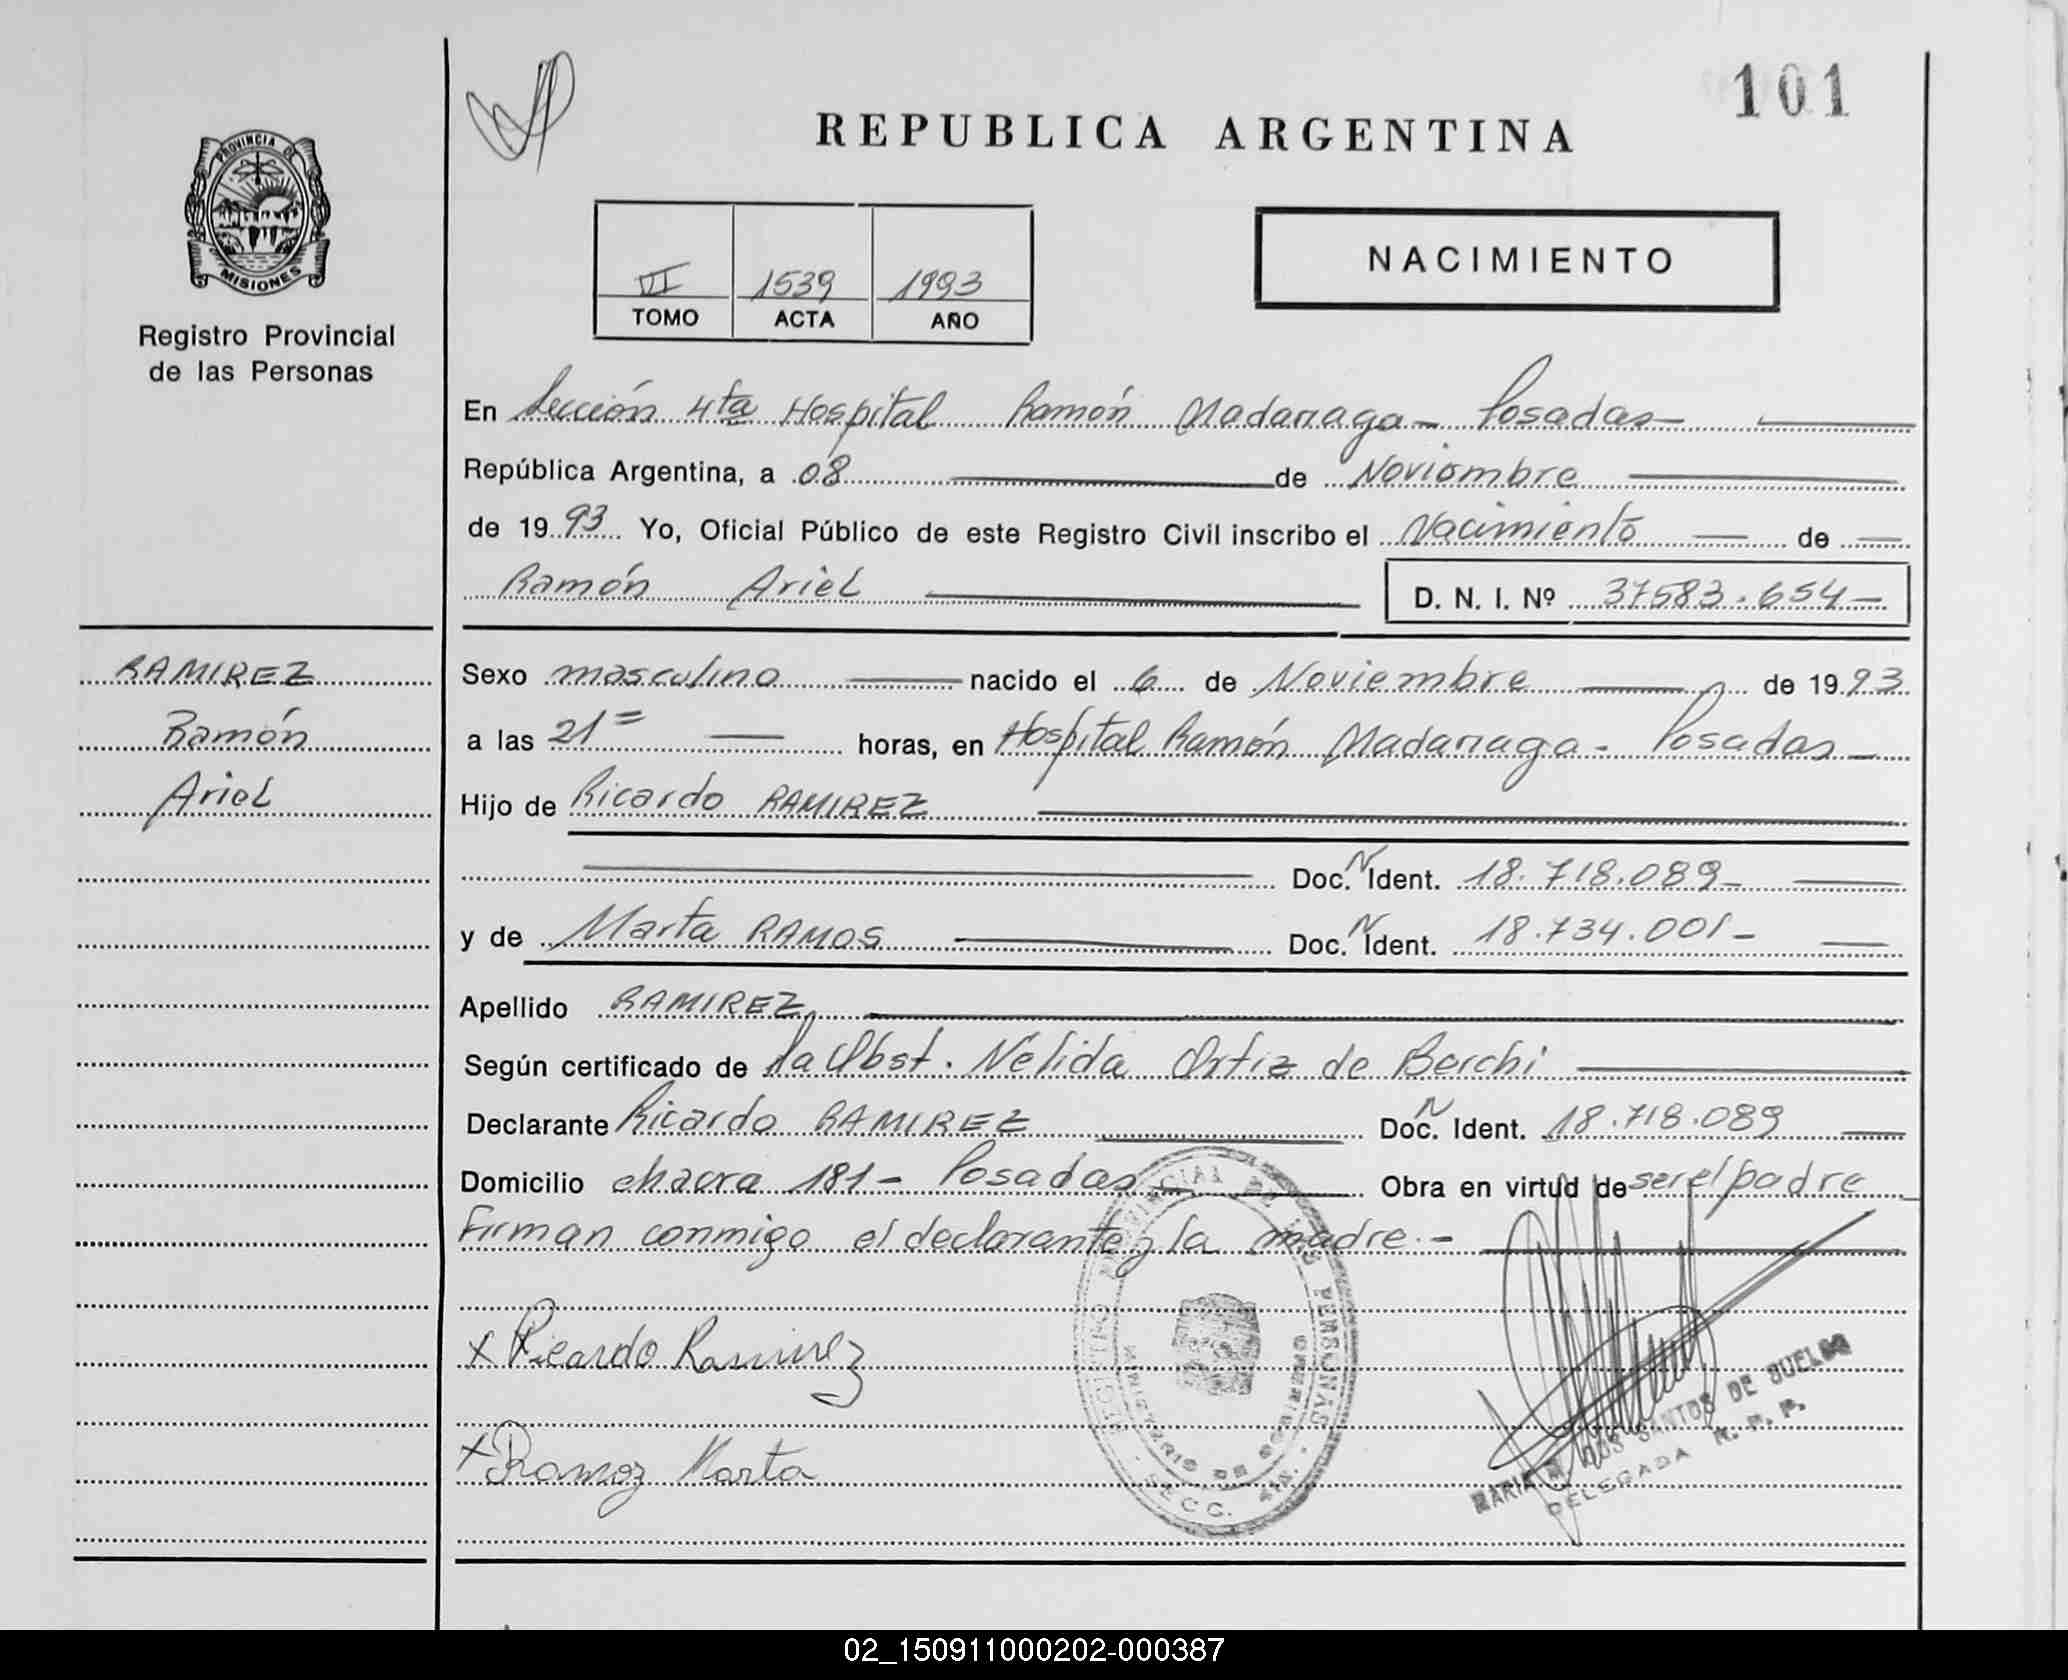 101
REPUBLICA ARGENTINA
PROVINCIA DE
MISIONES
Registro Provincial
de las Personas
VI 1539 1993
TOMO ACTA AÑO
NACIMIENTO
En Sección 4ta Hospital Ramón Madariaga - Posadas
República Argentina, a 08 de Noviembre
de 1993 Yo, Oficial Público de este Registro Civil inscribo el Nacimiento de
Ramón Ariel D. N. I. Nº 37583.654-
RAMIREZ
Ramón
Ariel
Sexo masculino nacido el 6 de Noviembre de 1993
a las 21= horas, en Hospital Ramón Madariaga - Posadas
Hijo de Ricardo RAMIREZ
Doc. N Ident. 18.718.089-
y de Marta RAMOS Doc. N Ident. 18.734.001-
Apellido RAMIREZ
Según certificado de la Obst. Nélida Ortiz de Berchi
Declarante Ricardo RAMIREZ Doc. N Ident. 18.718.089
Domicilio chacra 181 - Posadas Obra en virtud de ser el padre
Firman conmigo el declarante y la madre.-
x Ricardo Ramirez
x Ramoz Marta
REGISTRO PROVINCIAL DE LAS PERSONAS
MINISTERIO DE GOBIERNO
SECC. 4ta.
MARIA DOS SANTOS DE BUELOS
DELEGADA R. P. P.
02_150911000202-000387